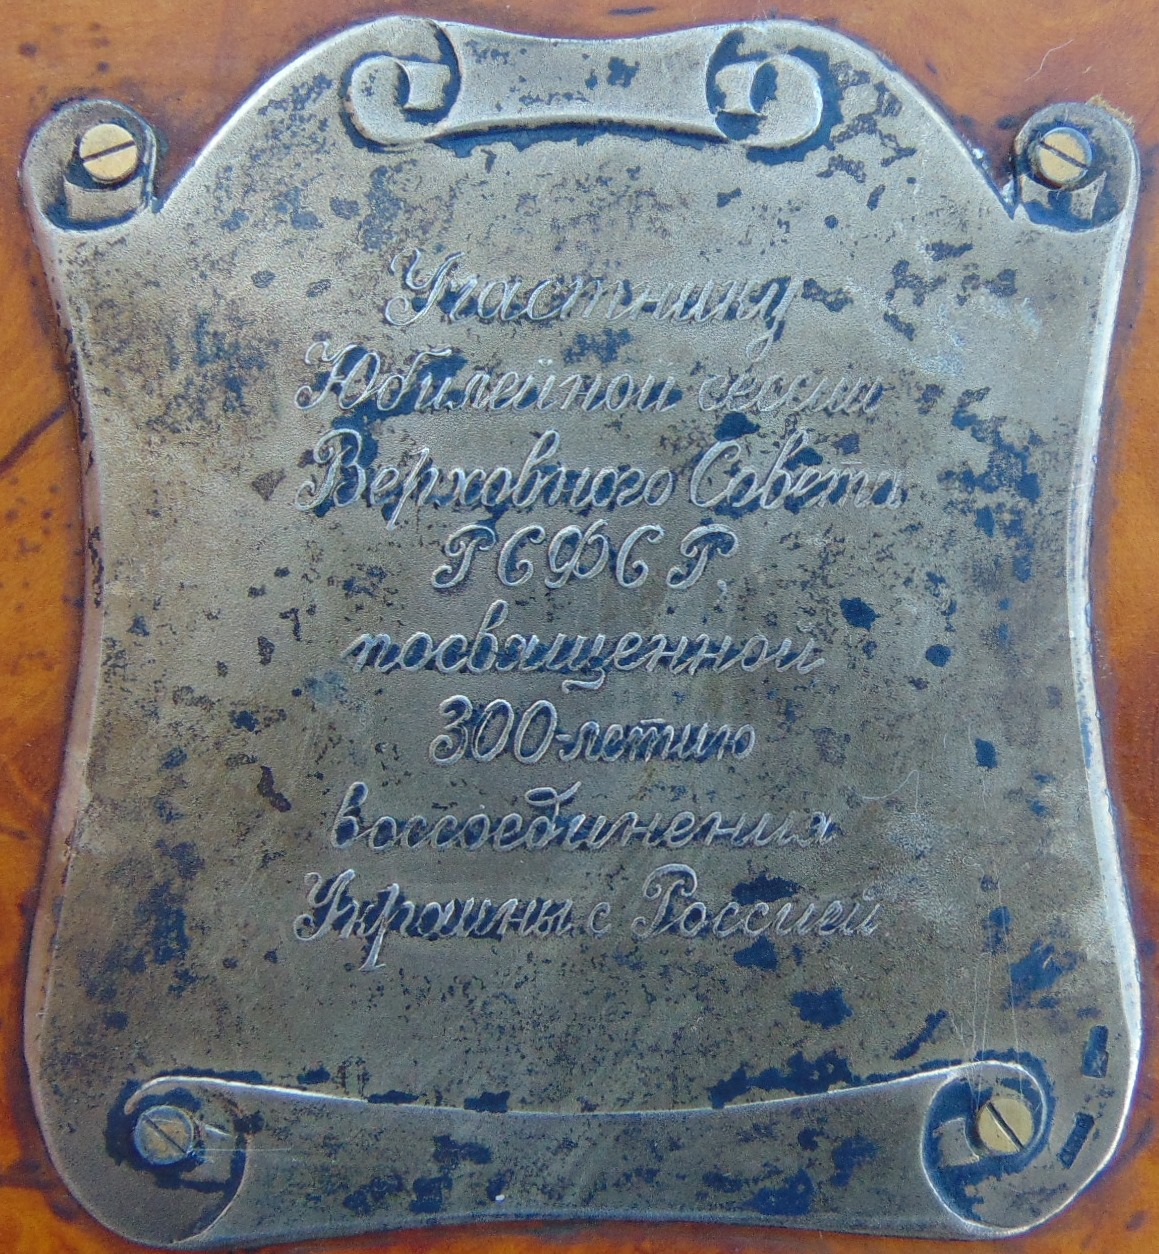 Участнику
Юбилейной сессии
Верховного Совета
РСФСР,
посвященной
300-летию
воссоединения
Украины с Россией